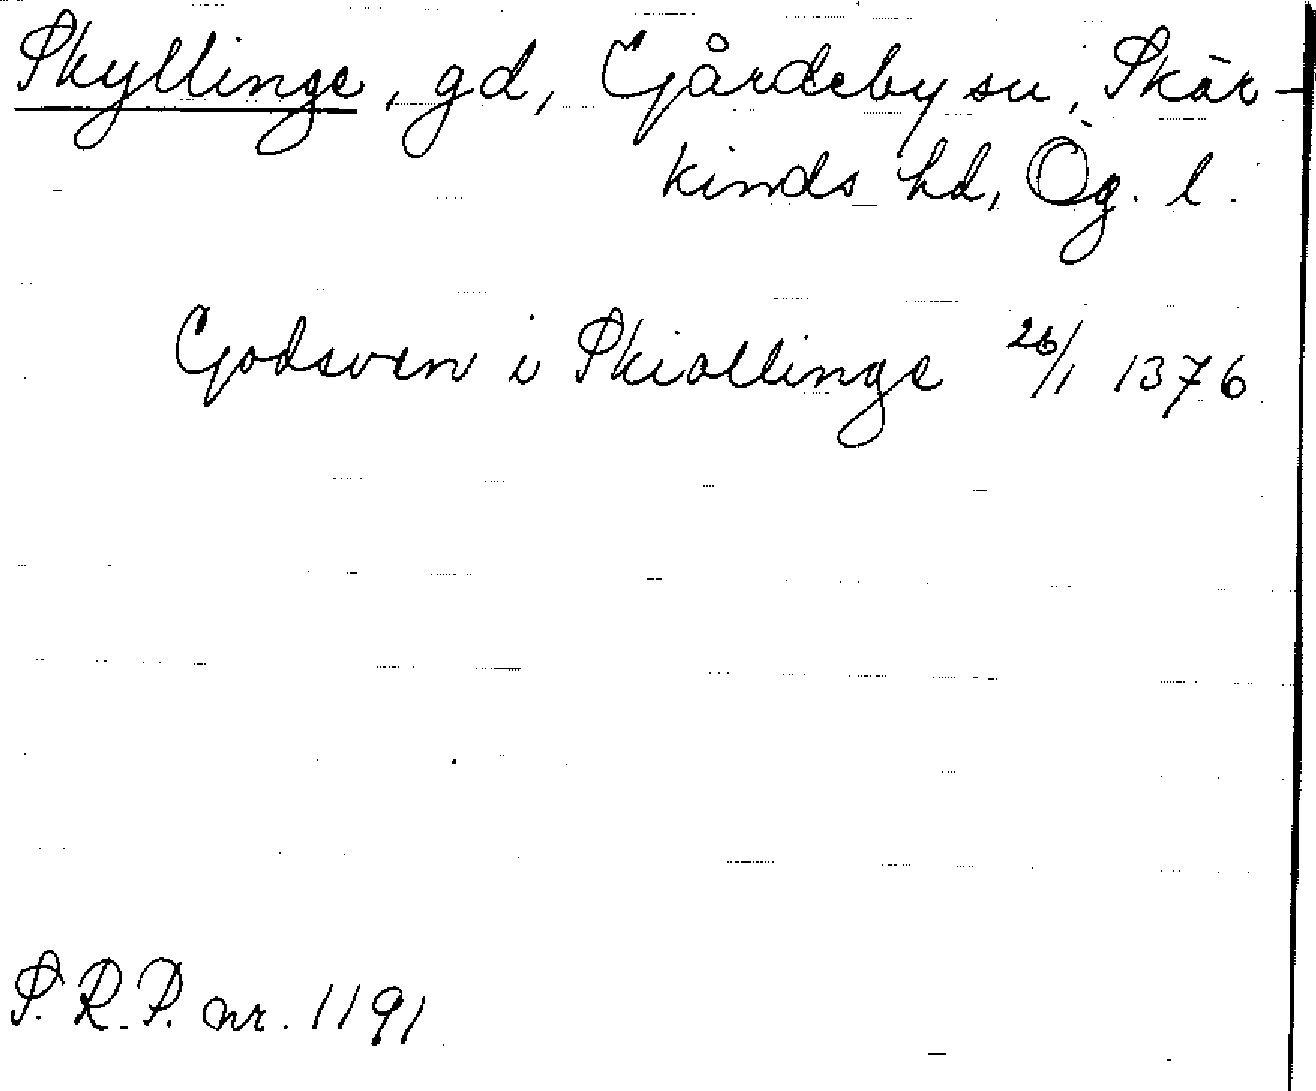 Skyllinge, gd, Gårdeby sn, Skär-
kinds hd, Ög. l.
Godsven i Skiollinge 26/1 1376
S.R.P. nr. 1191